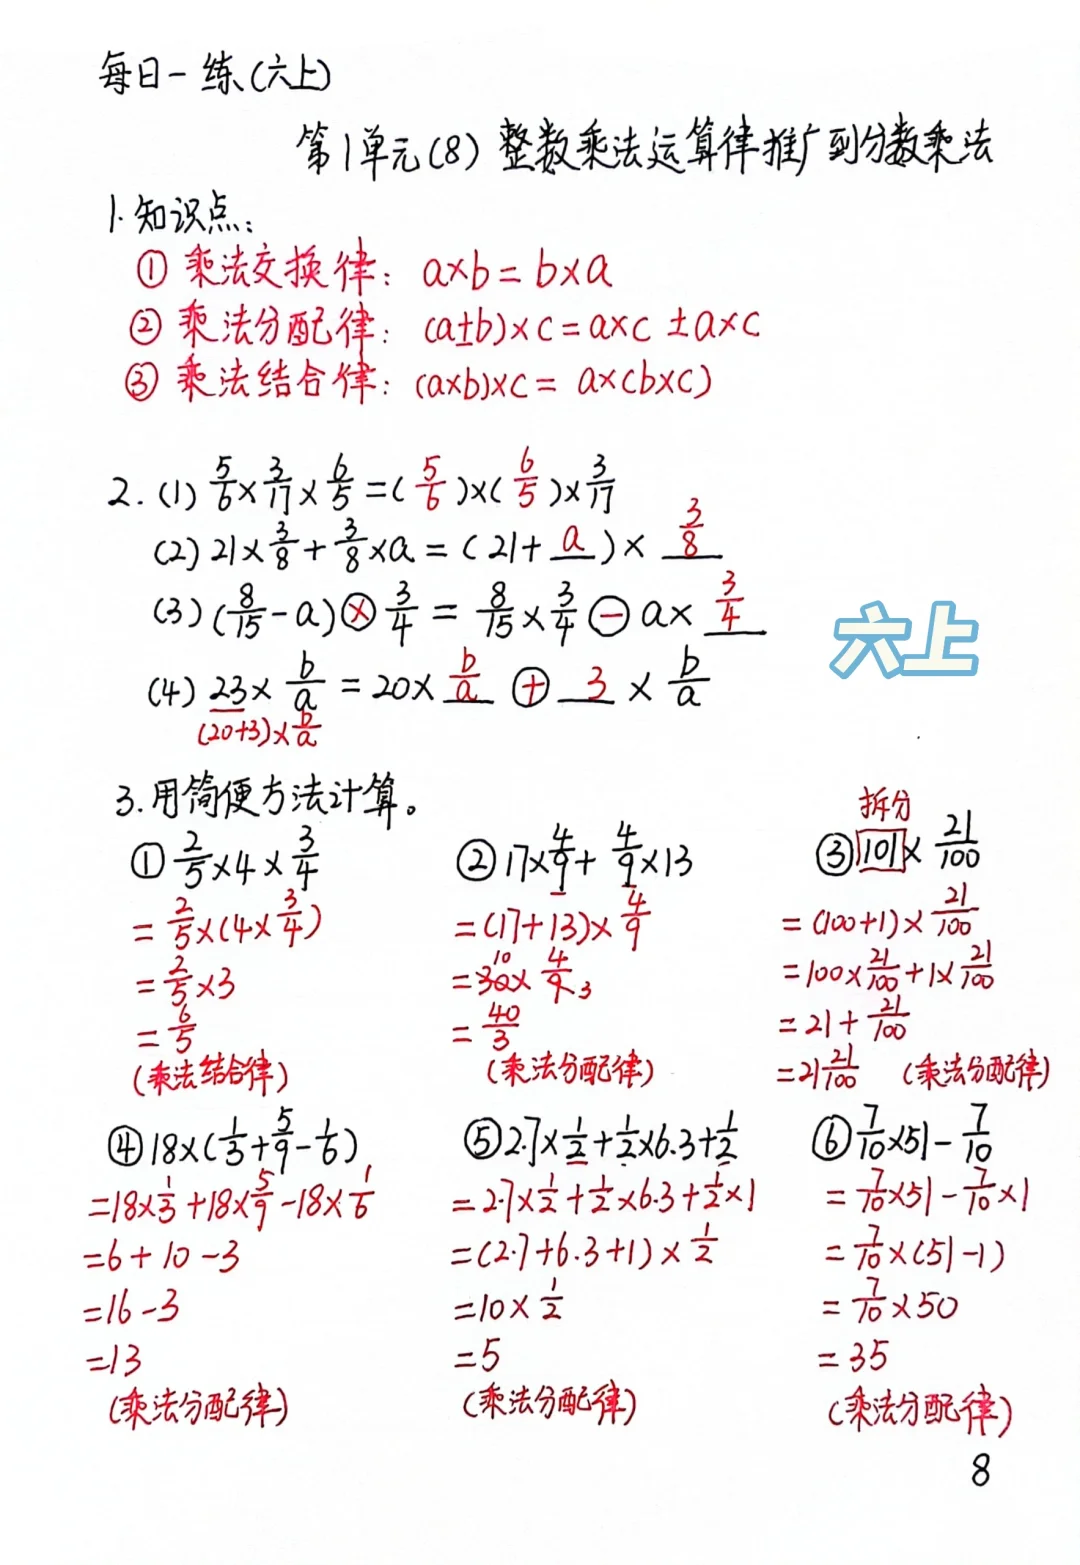 每日一练(六上)
第1单元(8) 整数乘法运算律推广到分数乘法
1.知识点:
① 乘法交换律: a×b=b×a
② 乘法分配律: (a±b)×c=a×c ±a×c
③ 乘法结合律: (a×b)×c= a×(b×c)
2.(1) 5/6×3/17×6/5=(5/6)×(6/5)×3/17
(2) 21×3/8+3/8×a=(21+a)×3/8
(3) (8/15-a)×3/4=8/15×3/4-a×3/4
(4) 23×b/a=20×b/a+3×b/a
(20+3)×b/a
六上
3.用简便方法计算。
①2/5×4×3/4
=2/5×(4×3/4)
=2/5×3
=6/5
(乘法结合律)
②17×4/9+4/9×13
=(17+13)×4/9
=30×4/9 10 3
=40/3
(乘法分配律)
拆分
③101×21/100
=(100+1)×21/100
=100×21/100+1×21/100
=21+21/100
=21 21/100 (乘法分配律)
④18×(1/3+5/9-1/6)
=18×1/3+18×5/9-18×1/6
=6+10-3
=16-3
=13
(乘法分配律)
⑤2.7×1/2+1/2×6.3+1/2
=2.7×1/2+1/2×6.3+1/2×1
=(2.7+6.3+1)×1/2
=10×1/2
=5
(乘法分配律)
⑥7/10×51-7/10
=7/10×51-7/10×1
=7/10×(51-1)
=7/10×50
=35
(乘法分配律)
8